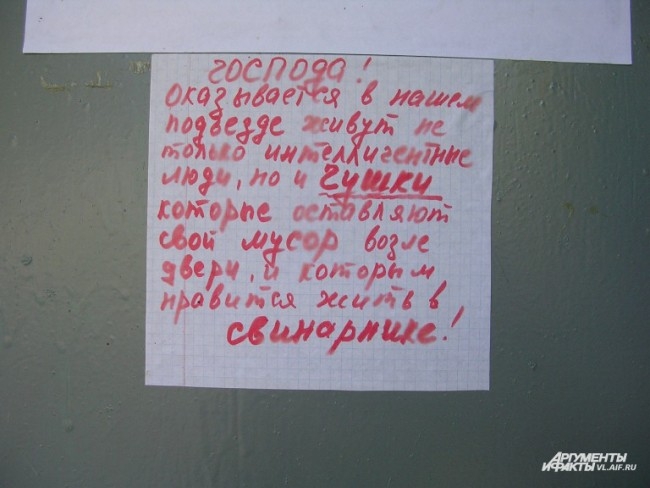 ГОСПОДА!
Оказывается в нашем
подвезде живут не
только интеллигентные
люди, но и Чушки
которые оставляют
свой мусор возле
двери, и которым
нравится жить в
свинарнике!
АРГУМЕНТЫ
И ФАКТЫ VL.AIF.RU